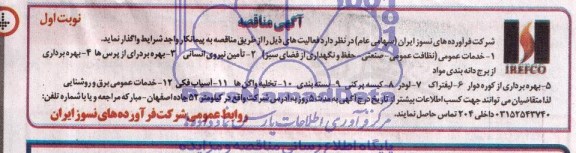 آگهی مناقصه
نوبت اول
شرکت فرآورده های نسوز ایران (سهامی عام) در نظر دارد فعالیت های ذیل را از طریق مناقصه به پیمانکار واجد شرایط واگذار نماید.
۱- خدمات عمومی (نظافت عمومی - صنعتی - حفظ و نگهداری از فضای سبز) ۲- تأمین نیروی انسانی ۳- بهره برداری از پرس ها ۴- بهره برداری از برج دانه بندی مواد
IREFCO
۵- بهره برداری از کوره دوار ۶- لیفتراک ۷- لودر ۸- کیسه پرکنی ۹- بسته بندی ۱۰- تخلیه واگن ها ۱۱- آسیاب فکی ۱۲- خدمات عمومی برق و روشنایی
لذا متقاضیان می توانند جهت کسب اطلاعات بیشتر از تاریخ درج آگهی به مدت ۵ روز به آدرس شرکت واقع در کیلومتر ۵۲ جاده اصفهان - مبارکه مراجعه و یا با شماره تلفن:
۰۳۱۵۲۵۴۳۷۴۰ داخلی ۲۰۴ تماس حاصل نمایند.
روابط عمومی شرکت فرآورده های نسوز ایران
مرکز فرآوری اطلاعات پارس نماد داده ها
پایگاه اطلاع رسانی مناقصه و مزایده